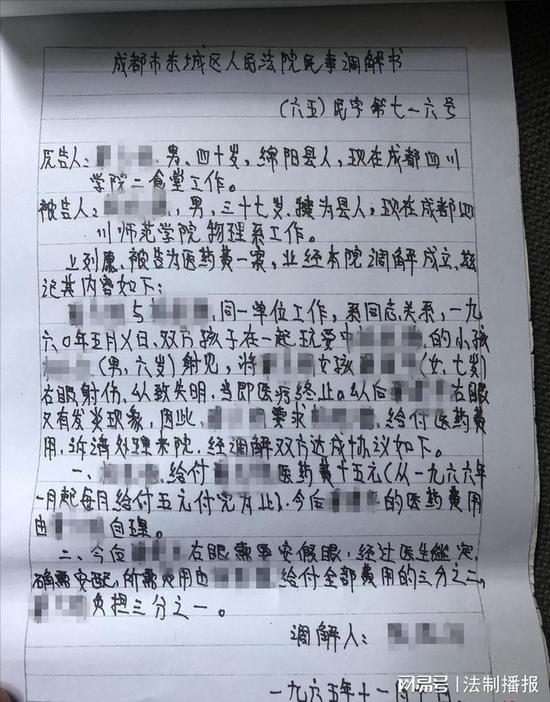 成都市东城区人民法院民事调解书
(六五)民字第七一六号
原告人: 男、四十岁，绵阳县人，现在成都四川
学院二食堂工作。
被告人: ，男，三十七岁，犍为县人，现在成都四
川师范学院物理系工作。
上列原、被告为医药费一案，业经本院调解成立，兹
记其内容如下:
与 ，同一单位工作，系同志关系，一九
六〇年五月 日，双方孩子在一起玩耍中 的小孩
(男，六岁)射 ，将 女孩 (女，七岁)
右眼射伤，从致失明，当即医疗终止。从后 右眼
又有发炎现象，因此， 要求 给付医药费
用，诉请处理来院，经调解双方达成协议如下。
一、 给付 医药费十五元(从一九六六年
一月起每月给付五元付完为止)，今后 的医药费用
由 自理。
二、今后 右眼需要安假眼，经过医生鉴定，
确需安配，所需费用由 给付全部费用的三分之二，
负担三分之一。
调解人:
一九六五年十一月 日
网易号 | 法制播报